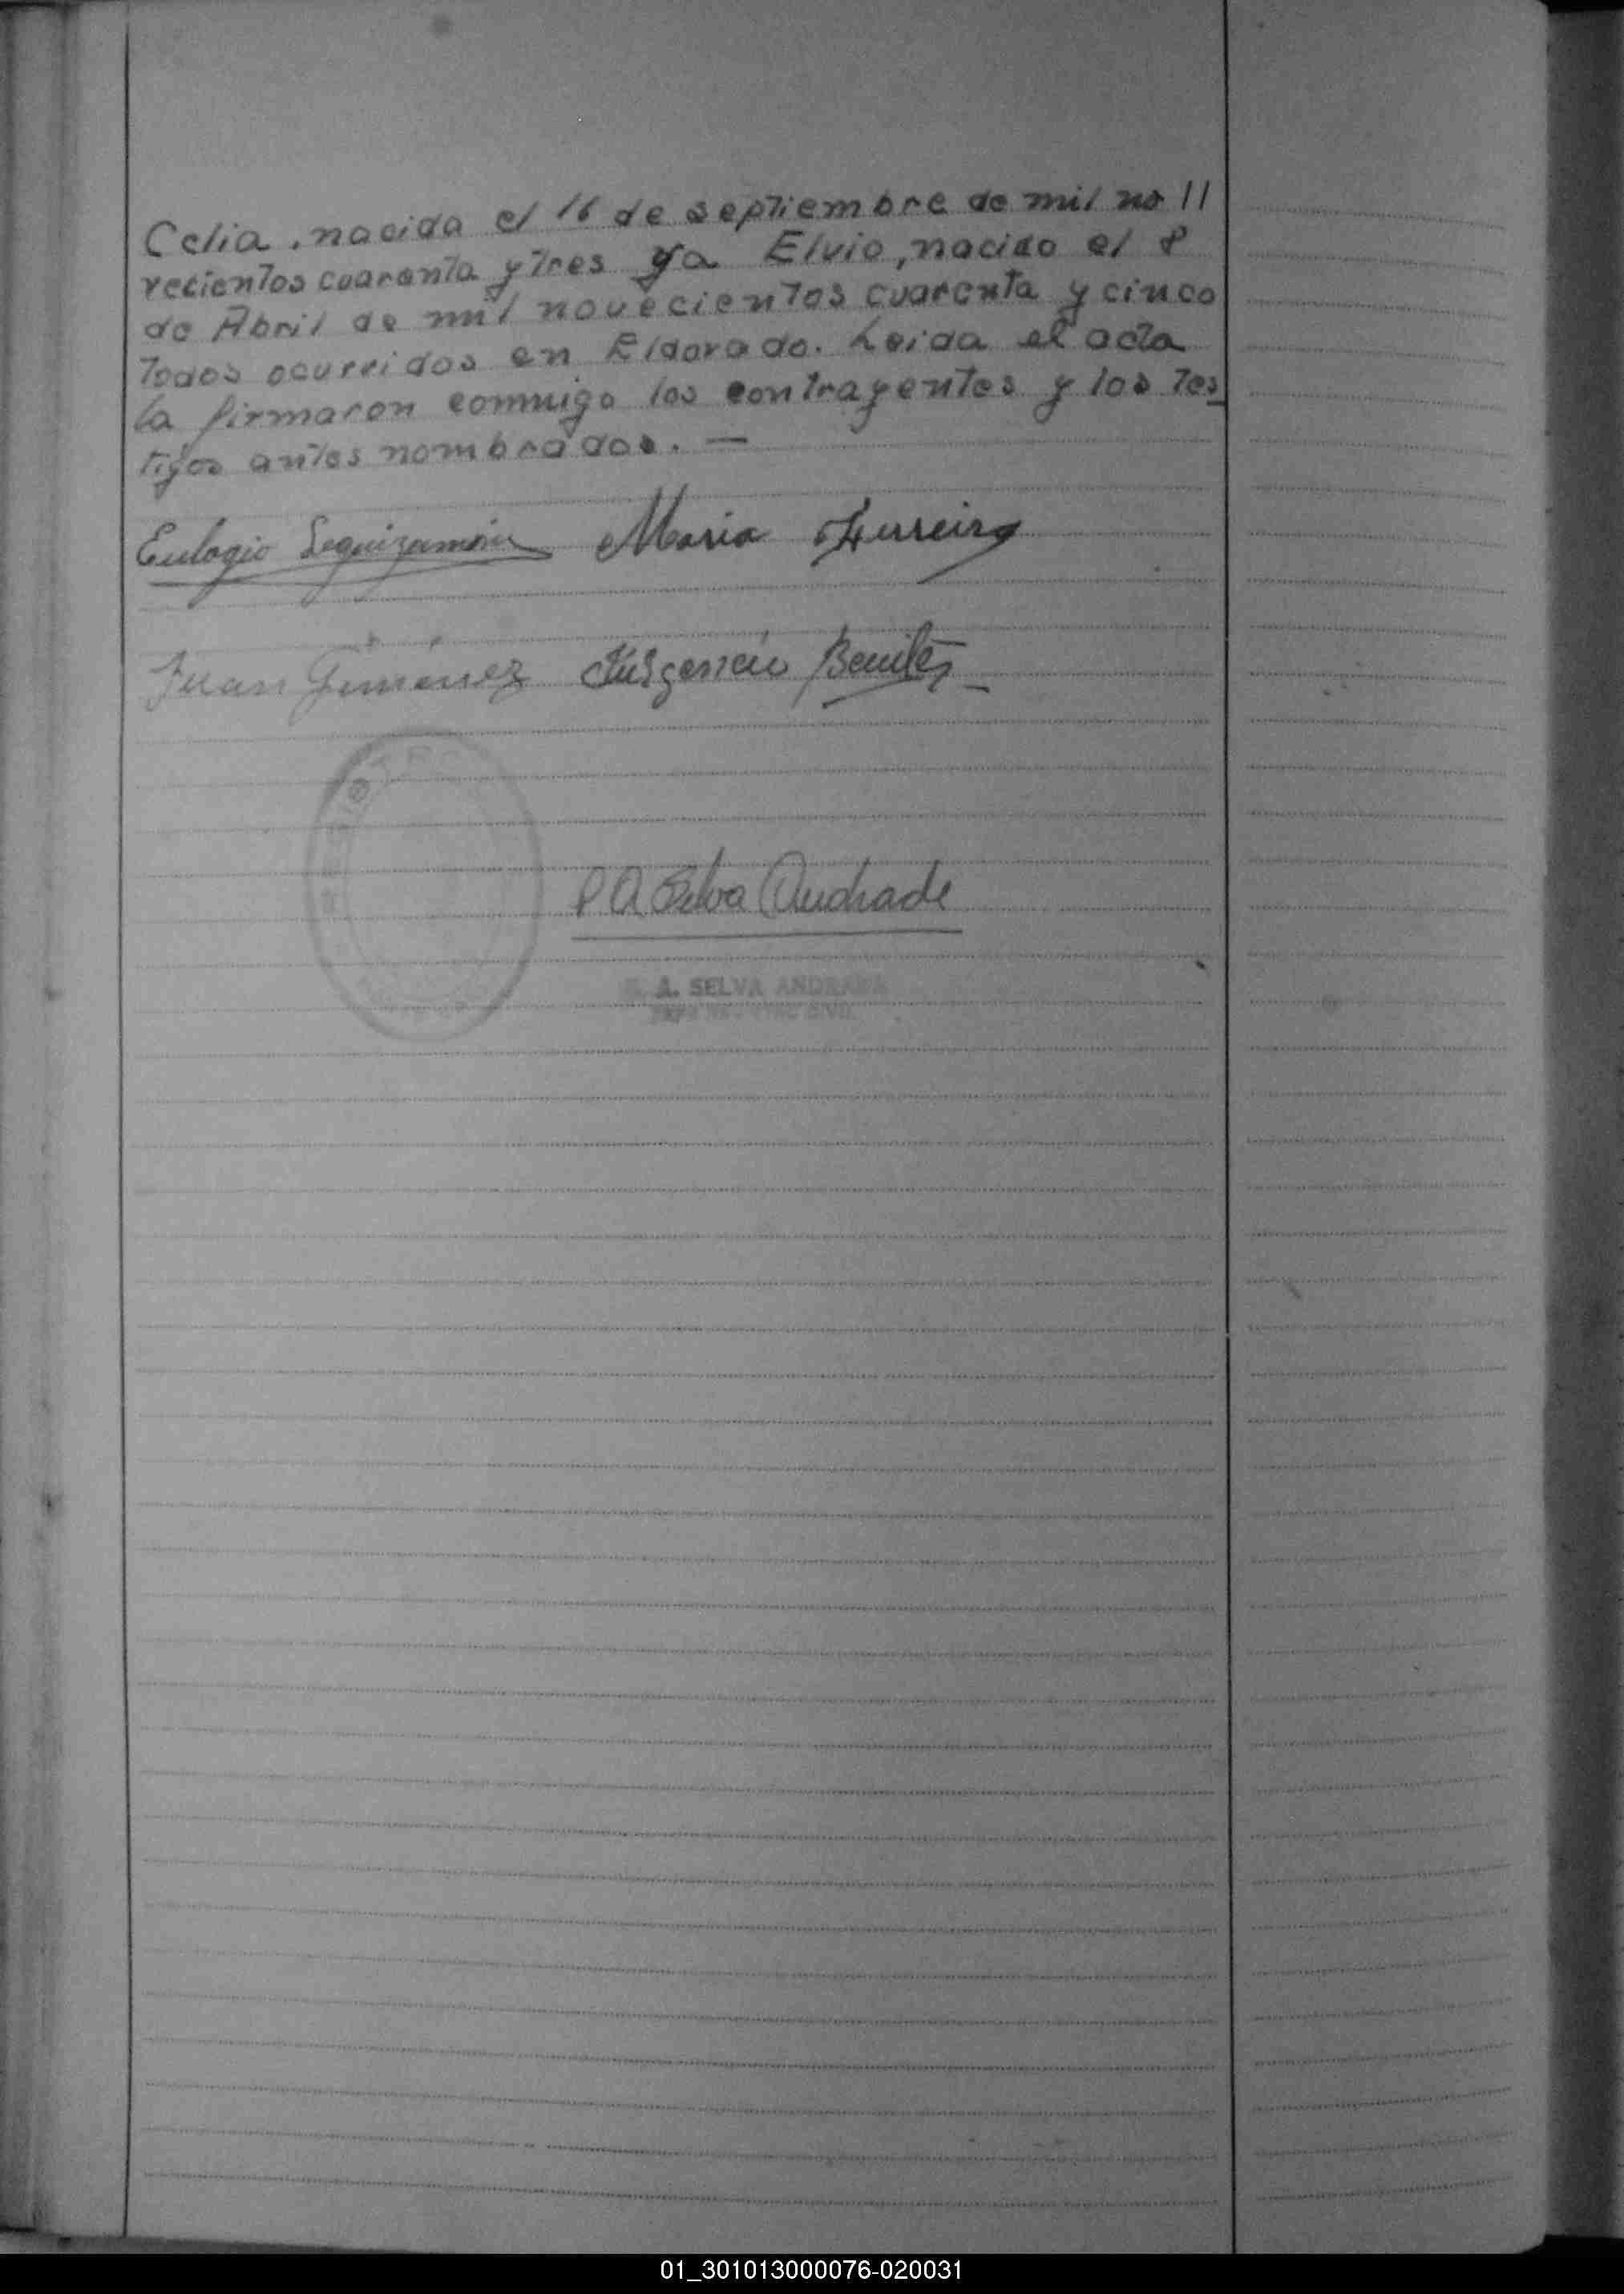 Celia, nacida el 16 de septiembre de mil no //
vecientos cuarenta y tres y a Elvio, nacido el 8
de Abril de mil novecientos cuarenta y cinco
todos ocurridos en Eldorado. Leida el acta
la firmaron conmigo los contrayentes y los tes
tigos antes nombrados. —
Eulogio Leguizamón Maria Ferreira
Juan Gimenez Benitez
P A Selva Andrade
A. SELVA ANDRADE
01_301013000076-020031